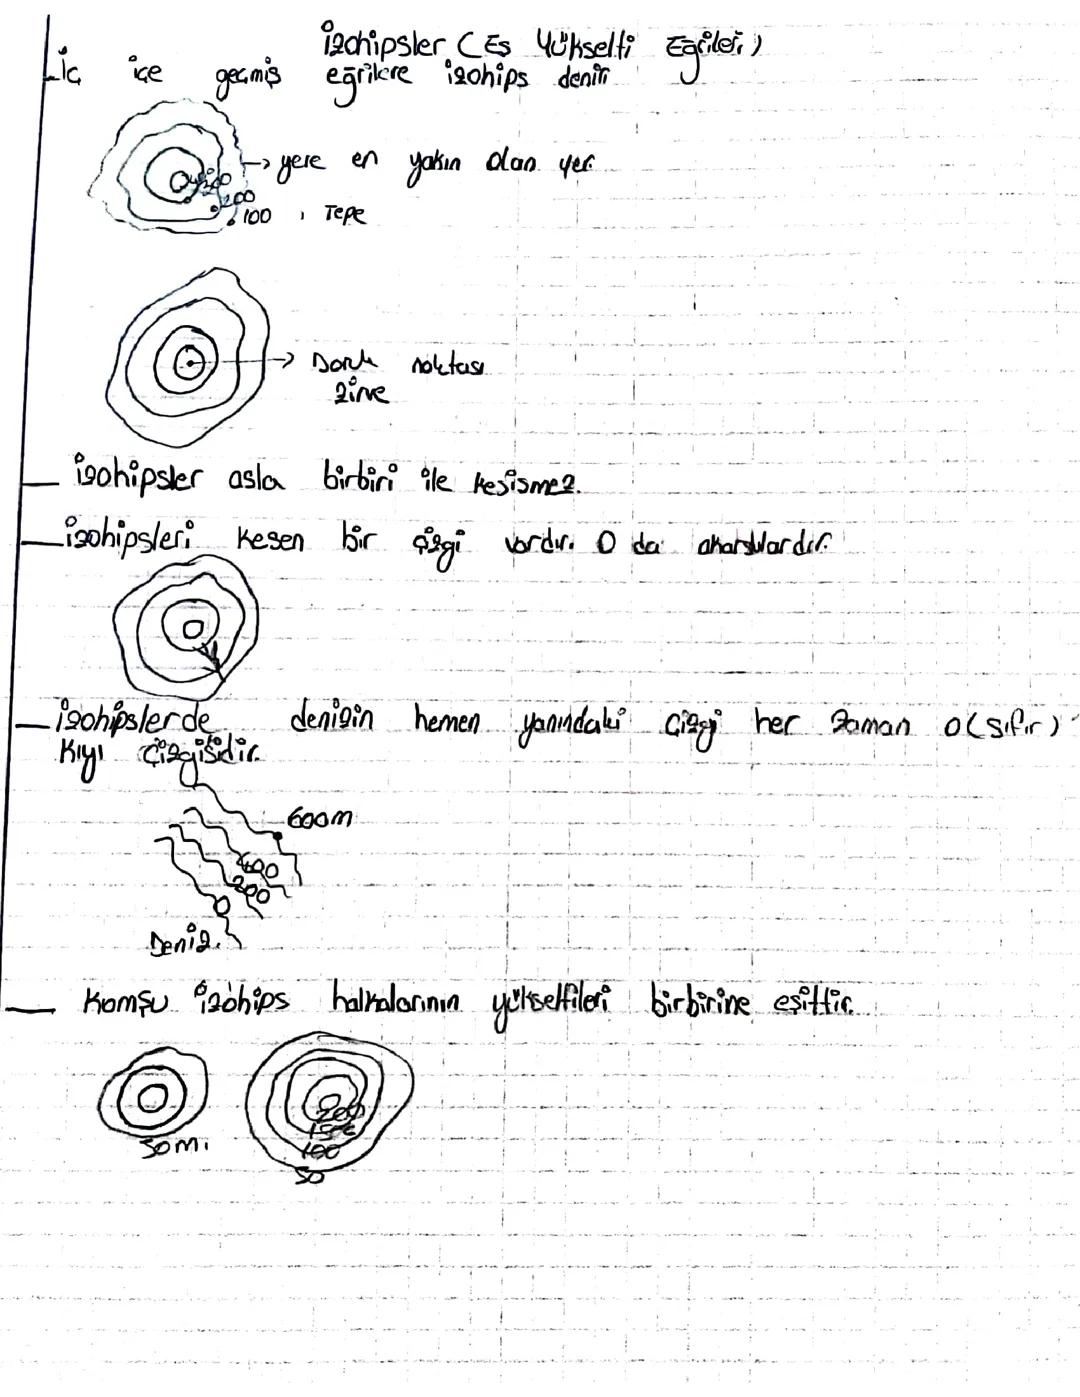 İzohipsler (Eş Yükselti Eğrileri)
İç içe geçmiş eğrilere izohips denir
yere en yakın olan yer.
300
200
100 , Tepe
Doruk noktası
zirve
izohipsler asla birbiri ile kesişmez.
izohipsleri kesen bir çizgi vardır. O da akarsulardır.
izohipslerde denizin hemen yanındaki çizgi her zaman 0 (sıfır)
kıyı çizgisidir.
600m
400
200
0
Deniz.
Komşu izohips halkalarının yükseltileri birbirine eşittir.
200
150
50m. 100
50